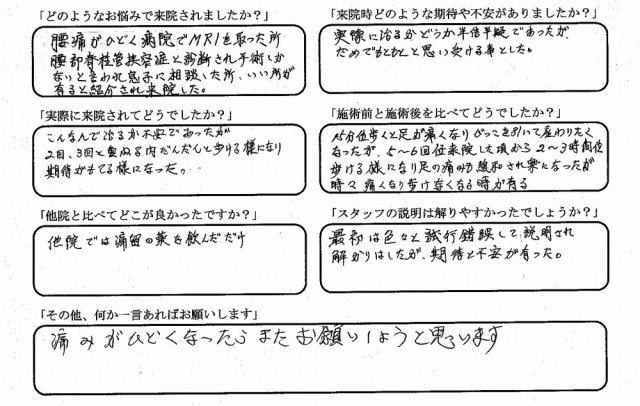 「どのようなお悩みで来院されましたか？」
腰痛がひどく病院でMRIを取った所
腰部脊柱管狭窄症と診断され手術しか
ないと言われ息子に相談した所、いい所が
有ると紹介され来院した。
「来院時どのような期待や不安がありましたか？」
実際に治るかどうか半信半疑であったが
だめでもともとと思い受ける事とした。
「実際に来院されてどうでしたか？」
こんなんで治るか不安であったが
2回、3回と重ねる内だんだんと歩ける様になり
期待がもてる様になった。
「施術前と施術後を比べてどうでしたか？」
15分位歩くと足が痛くなりびっこを引いて座わりたく
なったが、5〜6回位来院した頃から2〜3時間位
歩ける様になり足の痛みが緩和され楽になったが
時々痛くなり歩けなくなる時が有る
「他院と比べてどこが良かったですか？」
他院では痛留の薬を飲んだだけ
「スタッフの説明は解りやすかったでしょうか？」
最初は色々と試行錯誤して説明され
解かりはしたが、期待と不安が有った。
「その他、何か一言あればお願いします」
痛みがひどくなったらまたお願いしようと思っています